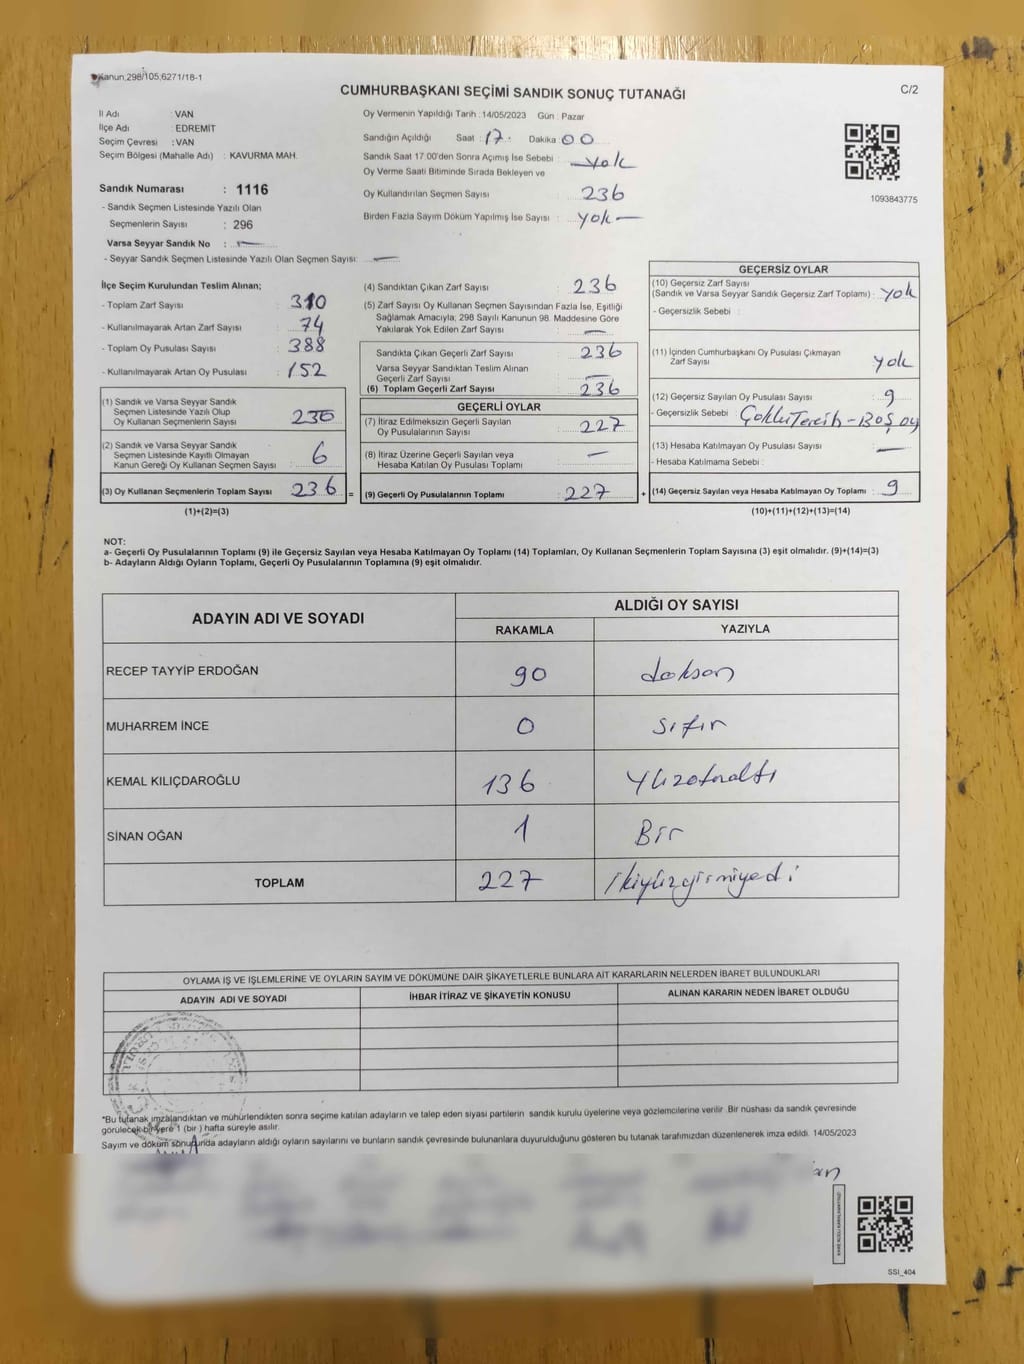 Kanun;298/105;6271/18-1
C/2
CUMHURBAŞKANI SEÇİMİ SANDIK SONUÇ TUTANAĞI
İl Adı : VAN
İlçe Adı : EDREMIT
Seçim Çevresi : VAN
Seçim Bölgesi (Mahalle Adı) : KAVURMA MAH.
Sandık Numarası : 1116
- Sandık Seçmen Listesinde Yazılı Olan
Seçmenlerin Sayısı : 296
Varsa Seyyar Sandık No : —
- Seyyar Sandık Seçmen Listesinde Yazılı Olan Seçmen Sayısı: —
Oy Vermenin Yapıldığı Tarih :14/05/2023 Gün : Pazar
Sandığın Açıldığı Saat : 17 Dakika : 00
Sandık Saat 17:00'den Sonra Açımış İse Sebebi : yok
Oy Verme Saati Bitiminde Sırada Bekleyen ve
Oy Kullandırılan Seçmen Sayısı : 236
Birden Fazla Sayım Döküm Yapılmış İse Sayısı : yok —
1093843775
İlçe Seçim Kurulundan Teslim Alınan;
- Toplam Zarf Sayısı : 310
- Kullanılmayarak Artan Zarf Sayısı : 74
- Toplam Oy Pusulası Sayısı : 388
- Kullanılmayarak Artan Oy Pusulası : 152
(1) Sandık ve Varsa Seyyar Sandık
Seçmen Listesinde Yazılı Olup
Oy Kullanan Seçmenlerin Sayısı : 230
(2) Sandık ve Varsa Seyyar Sandık
Seçmen Listesinde Kayıtlı Olmayan
Kanun Gereği Oy Kullanan Seçmen Sayısı : 6
(3) Oy Kullanan Seçmenlerin Toplam Sayısı : 236 =
(1)+(2)=(3)
(4) Sandıktan Çıkan Zarf Sayısı : 236
(5) Zarf Sayısı Oy Kullanan Seçmen Sayısından Fazla İse, Eşitliği
Sağlamak Amacıyla; 298 Sayılı Kanunun 98. Maddesine Göre
Yakılarak Yok Edilen Zarf Sayısı : —
Sandıkta Çıkan Geçerli Zarf Sayısı : 236
Varsa Seyyar Sandıktan Teslim Alınan
Geçerli Zarf Sayısı : —
(6) Toplam Geçerli Zarf Sayısı : 236
GEÇERLİ OYLAR
(7) İtiraz Edilmeksizin Geçerli Sayılan
Oy Pusulalarının Sayısı : 227
(8) İtiraz Üzerine Geçerli Sayılan veya
Hesaba Katılan Oy Pusulası Toplamı : —
(9) Geçerli Oy Pusulalarının Toplamı : 227 +
GEÇERSİZ OYLAR
(10) Geçersiz Zarf Sayısı
(Sandık ve Varsa Seyyar Sandık Geçersiz Zarf Toplamı) : yok
- Geçersizlik Sebebi :
(11) İçinden Cumhurbaşkanı Oy Pusulası Çıkmayan
Zarf Sayısı : yok
(12) Geçersiz Sayılan Oy Pusulası Sayısı : 9
- Geçersizlik Sebebi : Çoklu Tercih - Boş oy
(13) Hesaba Katılmayan Oy Pusulası Sayısı : —
- Hesaba Katılmama Sebebi :
(14) Geçersiz Sayılan veya Hesaba Katılmayan Oy Toplamı : 9
(10)+(11)+(12)+(13)=(14)
NOT:
a- Geçerli Oy Pusulalarının Toplamı (9) ile Geçersiz Sayılan veya Hesaba Katılmayan Oy Toplamı (14) Toplamları, Oy Kullanan Seçmenlerin Toplam Sayısına (3) eşit olmalıdır. (9)+(14)=(3)
b- Adayların Aldığı Oyların Toplamı, Geçerli Oy Pusulalarının Toplamına (9) eşit olmalıdır.
ADAYIN ADI VE SOYADI ALDIĞI OY SAYISI
RAKAMLA YAZIYLA
RECEP TAYYİP ERDOĞAN 90 doksan
MUHARREM İNCE 0 sıfır
KEMAL KILIÇDAROĞLU 136 Yüzotuzaltı
SİNAN OĞAN 1 Bir
TOPLAM 227 ikiyüzyirmiyedi
OYLAMA İŞ VE İŞLEMLERİNE VE OYLARIN SAYIM VE DÖKÜMÜNE DAİR ŞİKAYETLERLE BUNLARA AİT KARARLARIN NELERDEN İBARET BULUNDUKLARI
ADAYIN ADI VE SOYADI İHBAR İTİRAZ VE ŞİKAYETİN KONUSU ALINAN KARARIN NEDEN İBARET OLDUĞU
*Bu tutanak imzalandıktan ve mühürlendikten sonra seçime katılan adayların ve talep eden siyasi partilerin sandık kurulu üyelerine veya gözlemcilerine verilir. Bir nüshası da sandık çevresinde
görülecek bir yere 1 (bir) hafta süreyle asılır.
Sayım ve döküm sonunda adayların aldığı oyların sayılarını ve bunların sandık çevresinde bulunanlara duyurulduğunu gösteren bu tutanak tarafımızdan düzenlenerek imza edildi. 14/05/2023
SSİ_404